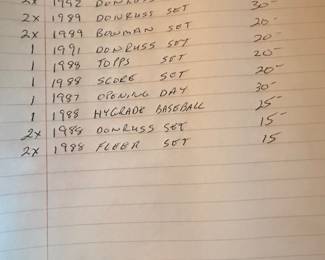 2x 1992 DONRUSS SET 30-
2x 1989 DONRUSS SET 20-
2x 1989 BOWMAN SET 20-
1 1991 DONRUSS SET 20-
1 1988 TOPPS SET 20-
1 1988 SCORE SET 20-
1 1987 OPENING DAY 30-
1 1988 HYGRADE BASEBALL 25-
2x 1988 DONRUSS SET 15-
2x 1988 FLEER SET 15